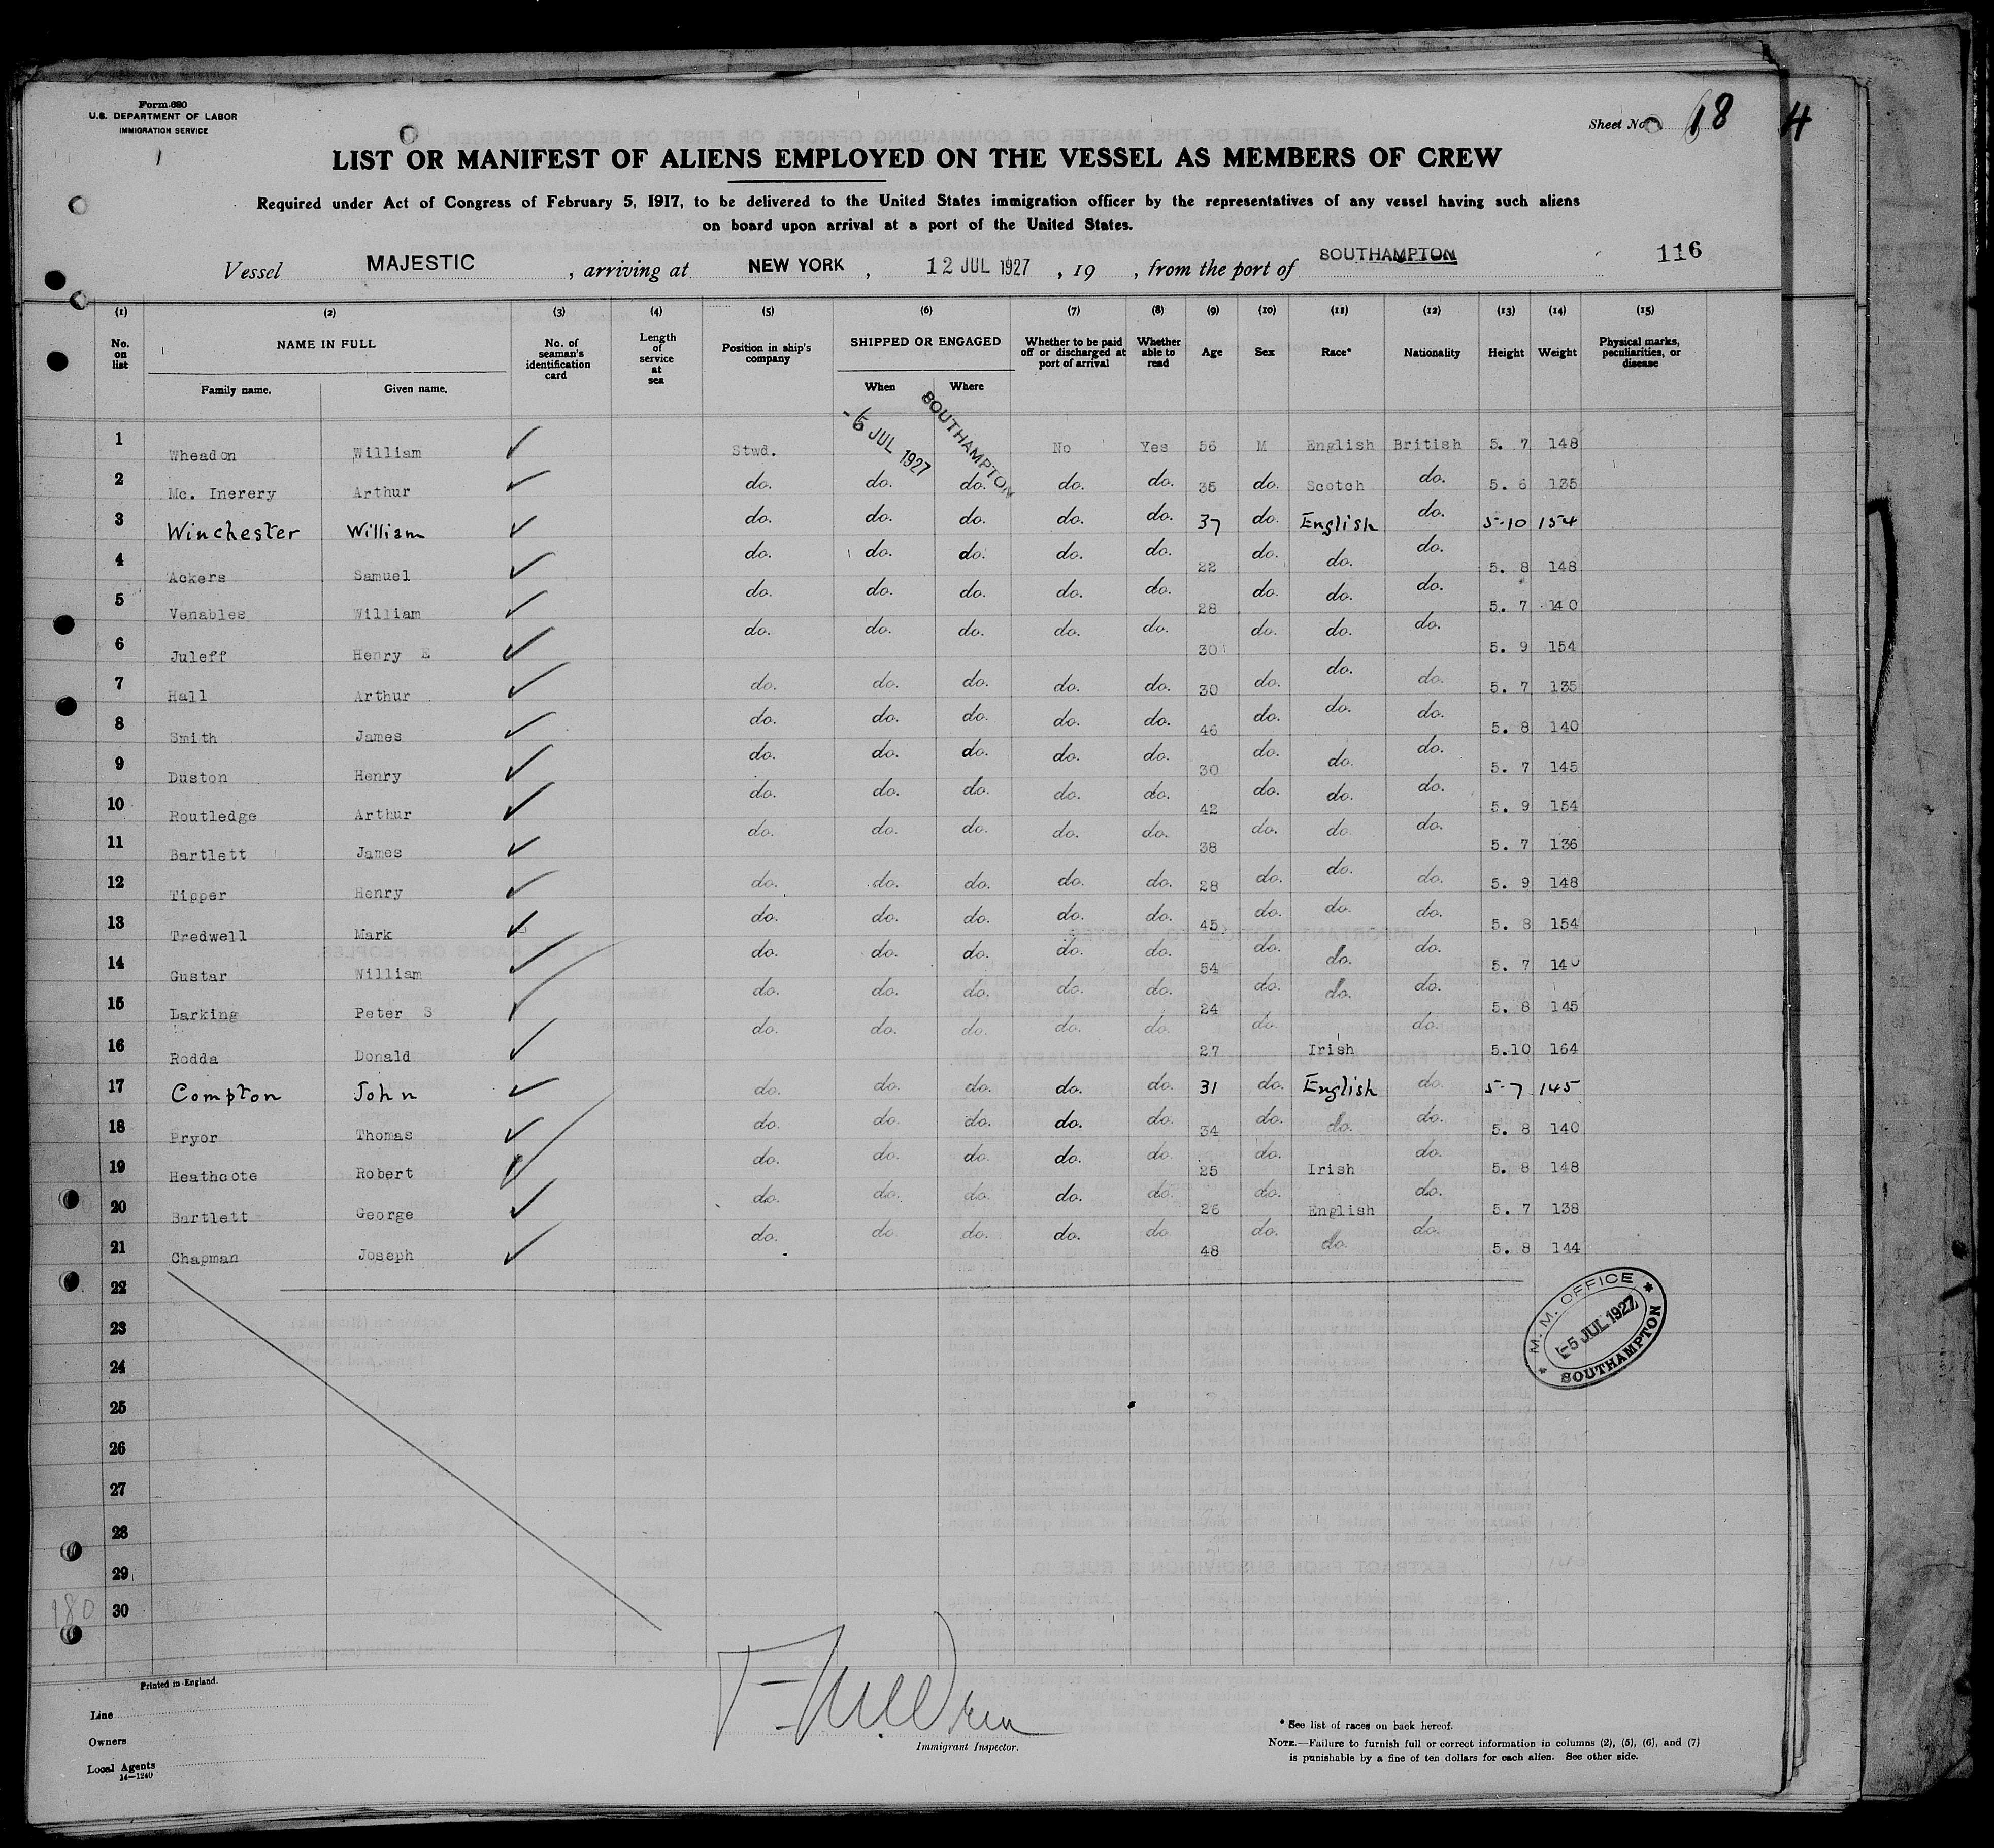 Form 680
U.S. DEPARTMENT OF LABOR
IMMIGRATION SERVICE
Sheet No. 18 4
LIST OR MANIFEST OF ALIENS EMPLOYED ON THE VESSEL AS MEMBERS OF CREW
Required under Act of Congress of February 5, 1917, to be delivered to the United States immigration officer by the representatives of any vessel having such aliens
on board upon arrival at a port of the United States.
Vessel MAJESTIC, arriving at NEW YORK, 12 JUL 1927, 19 , from the port of SOUTHAMPTON 116
(1) (2) (3) (4) (5) (6) (7) (8) (9) (10) (11) (12) (13) (14) (15)
No. on list NAME IN FULL Family name. Given name. No. of seaman's identification card Length of service at sea Position in ship's company SHIPPED OR ENGAGED When Where Whether to be paid off or discharged at port of arrival Whether able to read Age Sex Race* Nationality Height Weight Physical marks, peculiarities, or disease
1 Wheadon William ✓ Stwd. 5 JUL 1927 SOUTHAMPTON No Yes 56 M English British 5. 7 148
2 Mc. Inerery Arthur ✓ do. do. do. do. do. 35 do. Scotch do. 5. 6 135
3 Winchester William ✓ do. do. do. do. do. 37 do. English do. 5-10 154
4 Ackers Samuel ✓ do. do. do. do. do. 22 do. do. do. 5. 8 148
5 Venables William ✓ do. do. do. do. do. 28 do. do. do. 5. 7 140
6 Juleff Henry E ✓ do. do. do. do. do. 30 do. do. do. 5. 9 154
7 Hall Arthur ✓ do. do. do. do. do. 30 do. do. do. 5. 7 135
8 Smith James ✓ do. do. do. do. do. 46 do. do. do. 5. 8 140
9 Duston Henry ✓ do. do. do. do. do. 30 do. do. do. 5. 7 145
10 Routledge Arthur ✓ do. do. do. do. do. 42 do. do. do. 5. 9 154
11 Bartlett James ✓ do. do. do. do. do. 38 do. do. do. 5. 7 136
12 Tipper Henry ✓ do. do. do. do. do. 28 do. do. do. 5. 9 148
13 Tredwell Mark ✓ do. do. do. do. do. 45 do. do. do. 5. 8 154
14 Gustar William ✓ do. do. do. do. do. 54 do. do. do. 5. 7 140
15 Larking Peter S ✓ do. do. do. do. do. 24 do. do. do. 5. 8 145
16 Rodda Donald ✓ do. do. do. do. do. 27 do. Irish do. 5.10 164
17 Compton John ✓ do. do. do. do. do. 31 do. English do. 5-7 145
18 Pryor Thomas ✓ do. do. do. do. do. 34 do. do. do. 5. 8 140
19 Heathcote Robert ✓ do. do. do. do. do. 25 do. Irish do. 5. 8 148
20 Bartlett George ✓ do. do. do. do. do. 26 do. English do. 5. 7 138
21 Chapman Joseph ✓ do. do. do. do. do. 48 do. do. do. 5. 8 144
22
23
24
25
26
27
28
29
30
M. M. OFFICE
5 JUL 1927
SOUTHAMPTON
180
Printed in England.
Line
Owners
Local Agents
14—1240
Immigrant Inspector.
* See list of races on back hereof.
NOTE.—Failure to furnish full or correct information in columns (2), (5), (6), and (7)
is punishable by a fine of ten dollars for each alien. See other side.